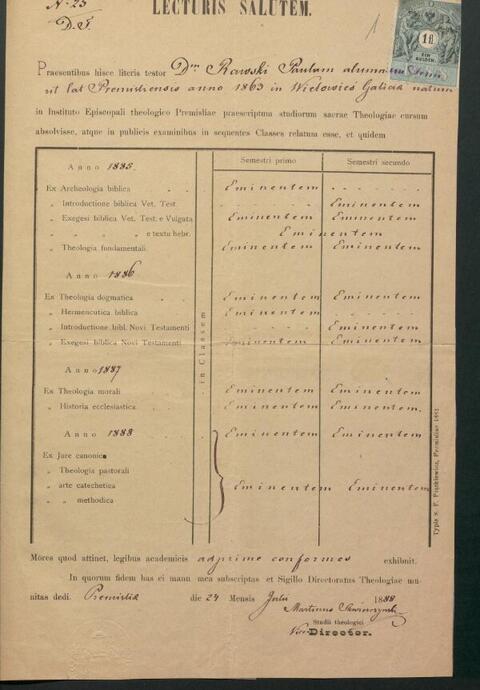 LECTURIS SALUTEM.
Nº 23
D. T.
1
1 fl
EIN GULDEN
Praesentibus hisce literis testor Dnm Rawski Paulum alumnum Semi
rit lat Premisliensis anno 1863 in Wielowieś Galicia natum
in Instituto Episcopali theologico Premisliae praescriptum studiorum sacrae Theologiae cursum
absolvisse, atque in publicis examinibus in sequentes Classes relatum esse, et quidem
Semestri primo Semestri secundo
Anno 1885.
Ex Archeologia biblica Eminentem
„ Introductione biblica Vet. Test. Eminentem
„ Exegesi biblica Vet. Test. e Vulgata Eminentem Eminentem
„ „ „ „ e textu hebr. Eminentem
„ Theologia fundamentali. Eminentem Eminentem
Anno 1886
Ex Theologia dogmatica Eminentem Eminentem
„ Hermeneutica biblica Eminentem
„ Introductione bibl. Novi Testamenti Eminentem
„ Exegesi biblica Novi Testamenti Eminentem Eminentem
in Classem
Anno 1887
Ex Theologia morali Eminentem Eminentem
„ Historia ecclesiastica. Eminentem Eminentem.
Anno 1888 Eminentem Eminentem
Ex Jure canonico
„ Theologia pastorali
„ arte catechetica Eminentem Eminentem
„ „ methodica
Typis S. F. Piątkiewicz, Premisliae
Mores quod attinet, legibus academicis adprime conformes exhibuit.
In quorum fidem has ei manu mea subscriptas et Sigillo Directoratus Theologiae mu-
nitas dedi. Premislia die 24 Mensis Julii 1888
Martinus
Studii theologici
Vice Director.